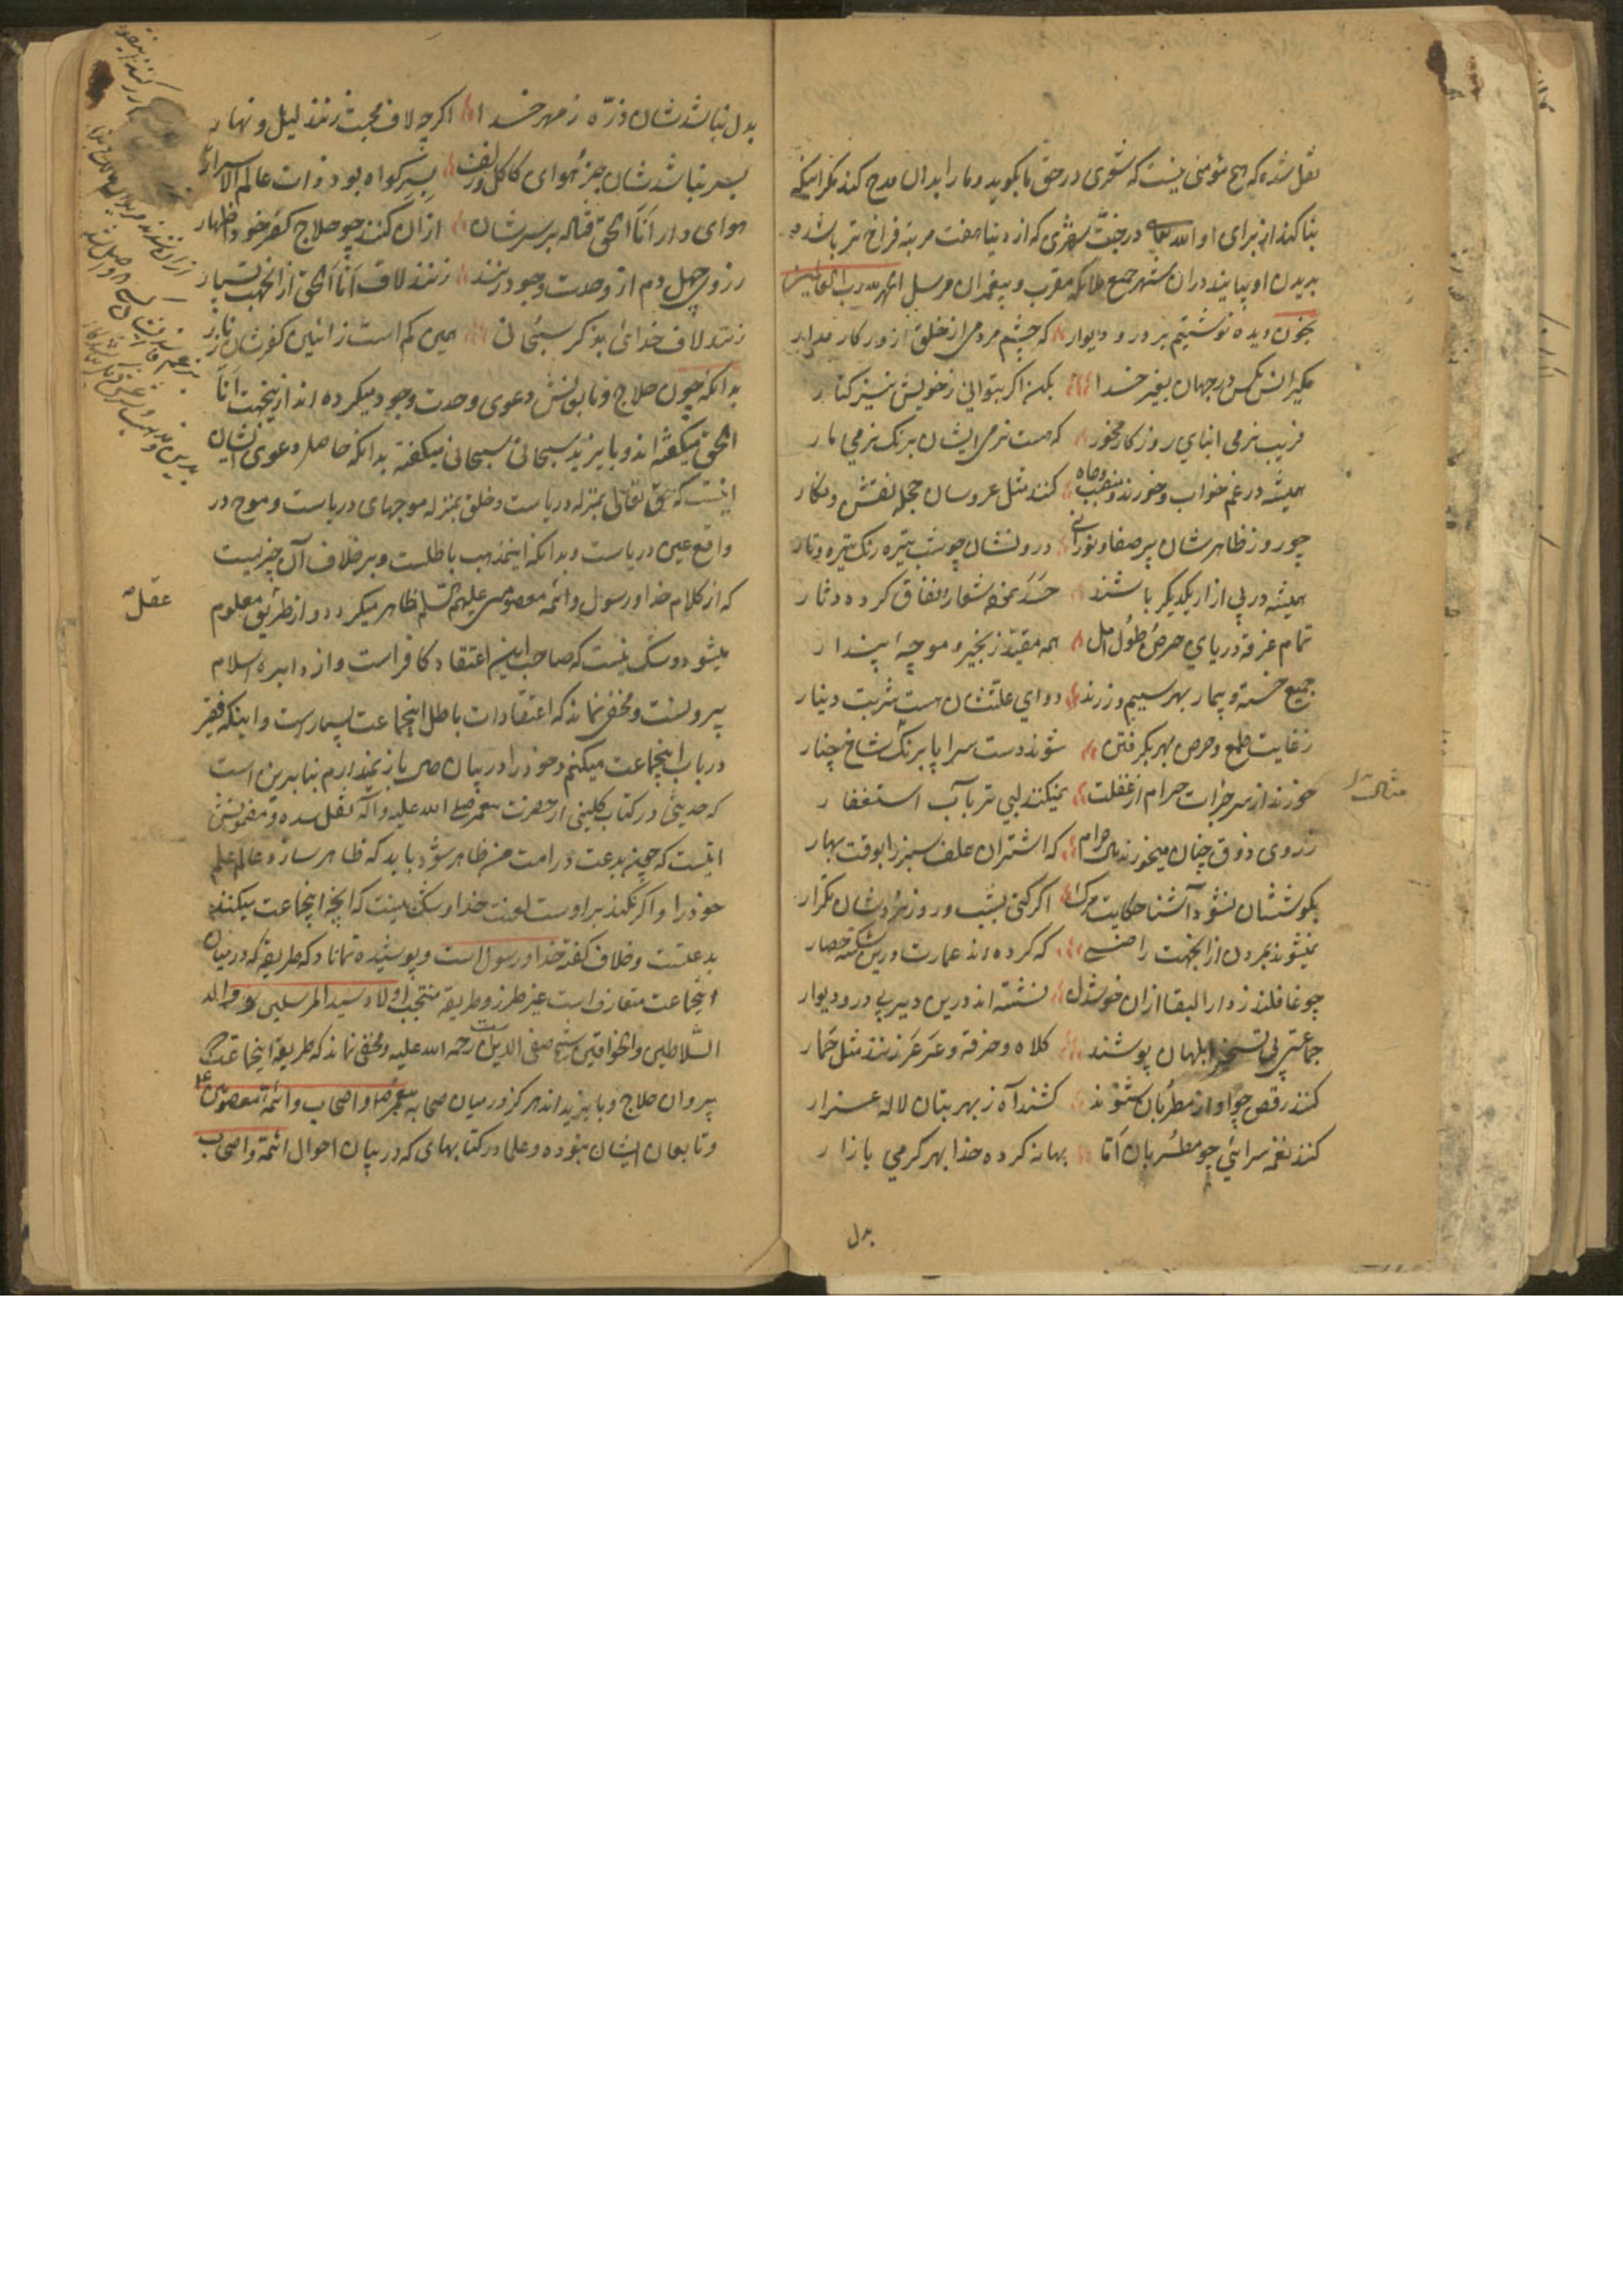 نقل شده که هیچ مؤمنی نیست که شعری در حق ما بکوید و ما را بدان مدح کند مکر اینکه
بنا کند از برای او الله تعالی در جنت شهری که از دنیا هفت مرتبه فراخ تر باشد و
بدیدن او بیایند دران شهر جمیع ملائکه مقرب و پیغمبران مرسل الحمد لله رب العالمین
بخون دیده نوشتیم بر در و دیوار که چشم مردمی از خلق روزکار مدار
مکیر انس بکس در جهان بغیر خدا بکن اکر بتوانی ز خویش نیز کنار
فریب نرمی ابنای روزکار مخور که هست نرمی ایشان برنک نرمی مار
همیشه در غم خواب و خورند و منصب و جاه کنند مثل عروسان حجله نقش و نکار
چو روز ظاهرشان پر صفا و نورانی درونشان چو شب تیره رنک تیره و تار
همیشه در پی ازار یکدیکر باشند حسد بخود شعار و نفاق کرده دثار
تمام غرقه دریای حرص و طول امل همه مقید زنجیر و موجه پندار
جمیع خسته و بیمار بهر سیم و زرند دوای علتشان هست شربت دینار
ز غایت طمع و حرص بهر بکرفتن شوند دست سراپا برنک شاخ چنار
خورند از سر جرات حرام از غفلت نمیکنند لبی تر بآب استغفار
ز روی ذوق چنان میخورند مال حرام که اشتران علف سبز را بوقت بهار
بکوششان نشود آشنا حکایت مرک اکر کنی بشب و روز نزدشان تکرار
نمیشوند بمردن از انجهت راضی که کرده اند عمارت درین شکسته حصار
چو غافلند ز دار البقا ازان خوشدل نشسته اند درین دیر بی در و دیوار
جماعتی پی تسخیر ابلهان پوشند کلاه و خرقه و عرعر زنند مثل حمار
کنند رقص چو آواز مطربان شنوند کشند آه ز بهر بتان لاله عذار
کنند نغمه سرائی چو مطربان اما بهانه کرده خدا بهر کرمی بازار
بدل
بدل نباشدشان ذره ز مهر خدا اکرچه لاف محبت زنند لیل و نهار
بسر نباشدشان جز هوای کاکل و زلف بسر کواه بود ذات عالم الاسرار
هوای دار انا الحق فتاده بر سرشان ازان کنند چو حلاج کفر خود اظهار
ز روی جهل دم از وحدت وجود زنند زنند لاف انا الحق از انجهت بسیار
زنند لاف خدائی بذکر سبحانی همین کم است ز ائین کفرشان زنار
بدانکه چون حلاج و تابعانش دعوی وحدت وجود میکرده اند ازینجهت انا
الحق میکفته اند و بایزید سبحانی سبحانی میکفته بدانکه حاصل دعوی ایشان
اینست که حق تعالی بمنزله دریاست و خلق بمنزله موجهای دریاست و موج در
واقع عین دریاست و بدانکه اینمذهب باطلست و بر خلاف آن چیزیست
که از کلام خدا و رسول و ائمه معصومین علیهم السلام ظاهر میکردد و از طریق معلوم
عقل
میشود و شک نیست که صاحب این اعتقاد کافر است و از دایره اسلام
بیرونست و مخفی نماند که اعتقادات باطل اینجماعت بسیار است و اینکه فقیر
در باب اینجماعت میکنم و خود را در بیان صبر باز نمیدارم بنابرین است
که حدیثی در کتاب کلینی از حضرت پیغمبر صلی الله علیه و آله نقل شده و مضمونش
اینست که چون بدعت در امت من ظاهر شود باید که ظاهر سازد عالم علم
خود را و اکر نکند بر اوست لعنت خدا و شک نیست که انچه اینجماعت میکنند
بدعتست و خلاف کفته خدا و رسول است و پوشیده نماناد که طریقه که در میان
اینجماعت متعارف است غیر طرز و طریقه منتجب اولاد سید المرسلین و والد
السلاطین والخواقین شیخ صفی الدین است رحمه الله علیه و مخفی نماند که طریقه اینجماعت که
پیروان حلاج و بایزیداند هرکز در میان صحابه پیغمبر و اصحاب و ائمه معصومین
و تابعان ایشان نبوده و علما در کتابهای که در بیان احوال ائمه و اصحاب